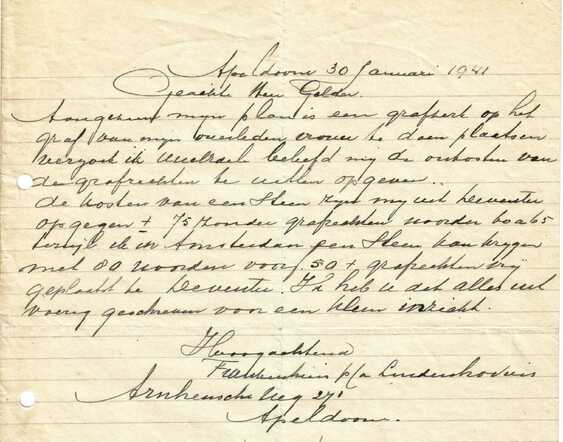 Apeldoorn 30 Januari 1941
Geachte Heer Gelder.
Aangezien mijn plan is een grafzert op het
graf van mijn overleden vrouw te doen plaatsen
verzoek ik Uweled. beleefd mij de onkosten van
de grafrechten te willen opgeven..
de kosten van een Steen zijn mij uit Deventer
opgegen ± 75 zonder grafrechten
terwijl ik in Amsterdam een Steen kan krygen
met 80 woorden voor 50 + grafrechten vrij
geplaatst te Deventer. Ik heb U dit alles uit
voerig geschreven voor een klein inzicht.
Hoogachtend
p/a
Arnhemsche Weg 271
Apeldoorn.